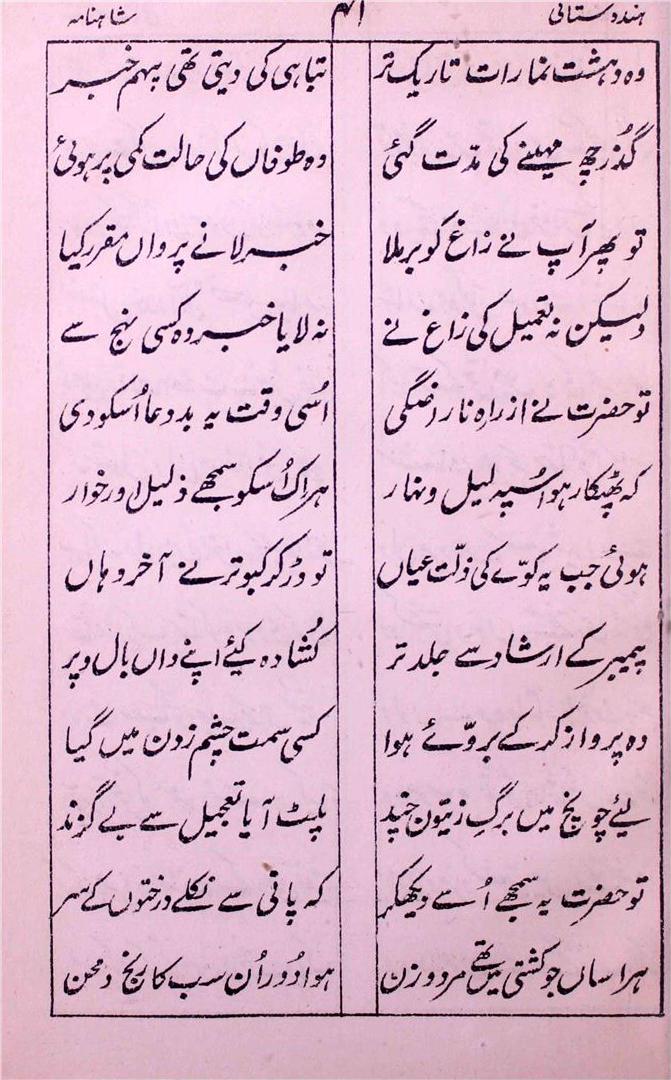 ہندوستانی ۴۱ شاہنامہ
وہ دہشت نما رات تاریک تر تباہی کی دیتی تھی پیہم خبر
گذر چھ مہینے کی مدّت گئی وہ طوفاں کی حالت کمی پر ہوئی
تو پھر آپ نے زاغ کو برملا خبر لانے پر واں مقرر کیا
ولیکن نہ تعمیل کی زاغ نے نہ لایا خبر وہ کسی نہج سے
تو حضرت نے از راہِ ناراضگی اُسی وقت یہ بد دعا اُسکو دی
کہ پھٹکار ہو اسپہ لیل و نہار ہر اک اُسکو سمجھے ذلیل اور خوار
ہوئی جب یہ کوّے کی ذلّت عیاں تو ڈر کر کبوتر نے آخر وہاں
پیمبر کے ارشاد سے جلد تر کُشادہ کیئے اپنے واں بال و پر
وہ پرواز کر کے بروّئے ہوا کسی سمت چشم زدن میں گیا
لیئے چونچ میں برگِ زیتون چند پلٹ آیا تعجیل سے بے گزند
تو حضرت یہ سمجھے اُسے دیکھکر کہ پانی سے نکلے درختوں کے سر
ہراساں جو کشتی میں تھے مرد و زن ہوا دُور اُن سب کا رنج و محن